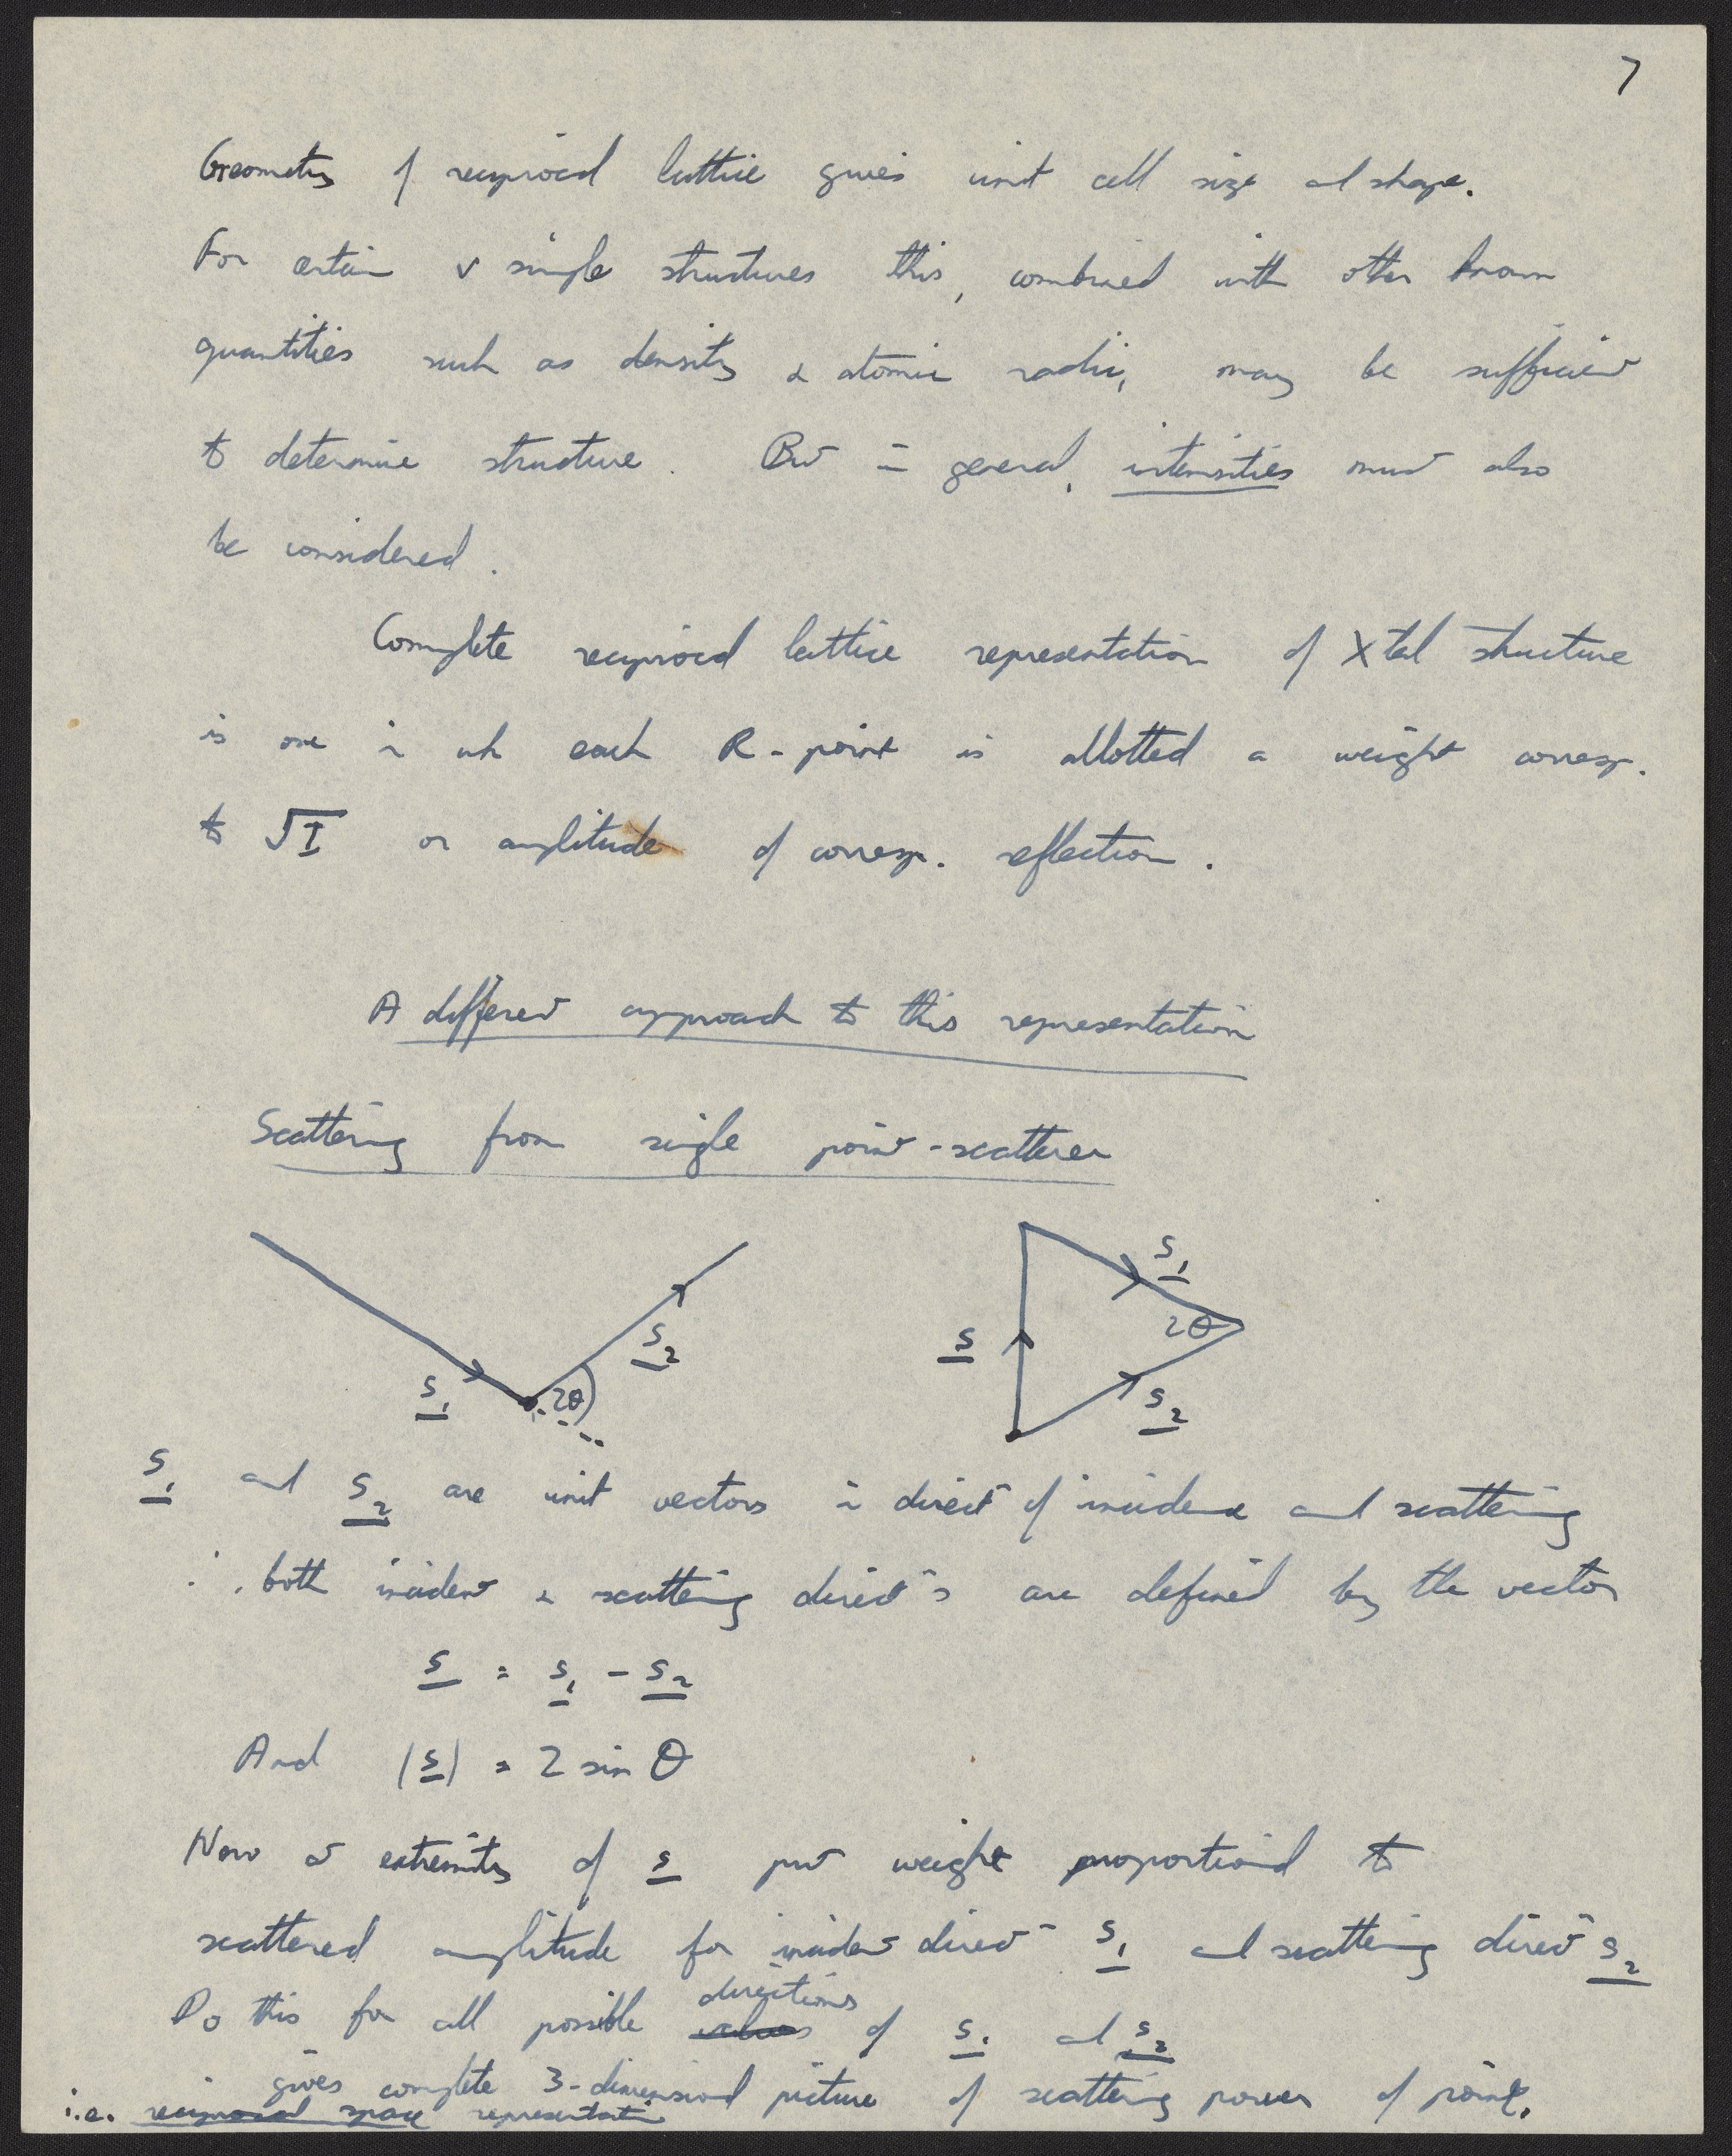 7
Geometry of reciprocal lattice gives unit cell size and shape.
For certain v simple structures this, combined with other known
quantities such as density & atomic radii, may be sufficient
to determine structure. But in general, intensities must also
be considered.
Complete reciprocal lattice representation of Xtal structure
is one in wh each R-point is allotted a weight corresp.
to √I or amplitude of corresp. reflection.
A different approach to this representation
Scattering from single point-scatterer
s₁ 2θ s₂
s s₁ 2θ s₂
s₁ and s₂ are unit vectors in directⁿ of incidence and scattering
∴ both incident & scattering directⁿs are defined by the vector
s = s₁ - s₂
And |s| = 2 sin θ
Now at extremity of s put weight proportional to
scattered amplitude for incident directⁿ s₁ and scattering directⁿ s₂
Do this for all possible directions of s₁ and s₂
gives complete 3-dimensional picture of scattering power of point,
i.e. reciprocal space representation